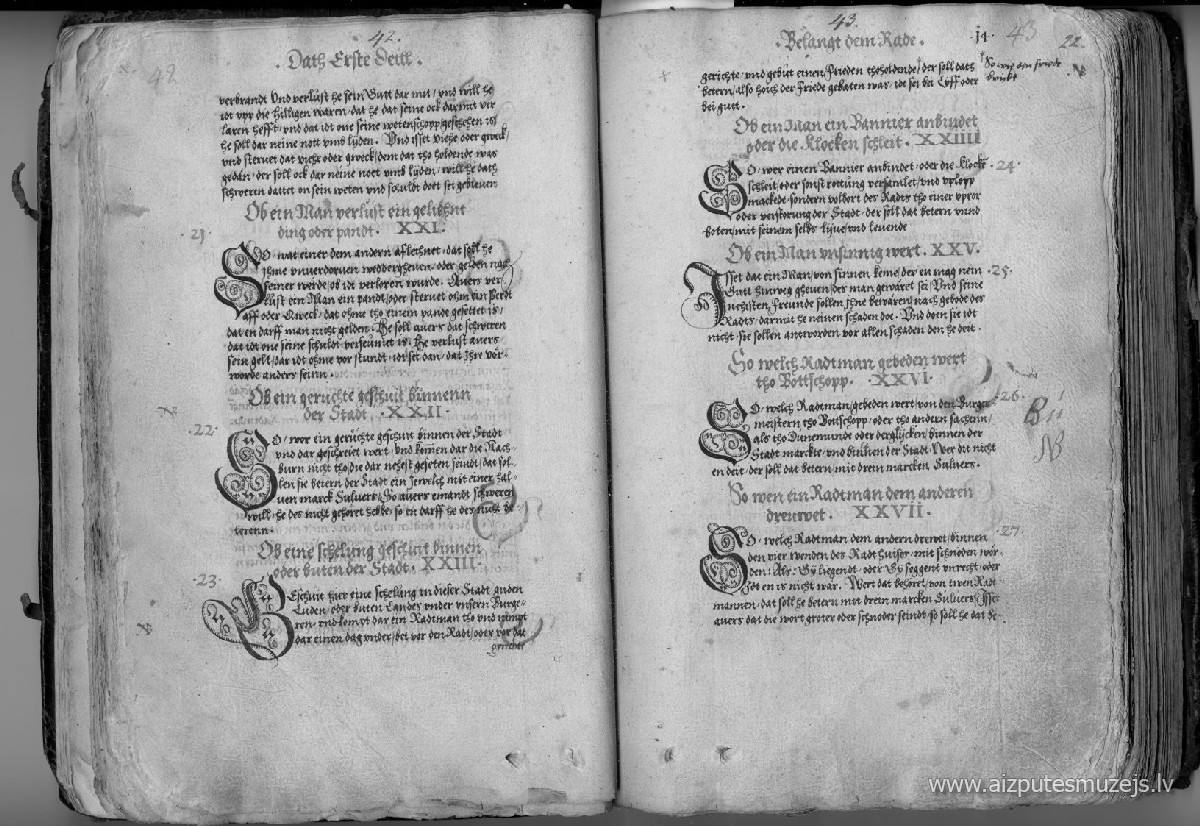 42.
48
. Dath Erste Deill .
verbrandt Vnd verlust he sein Gutt dar mit / vnd will he
idt vpp die hilligen waren, dat he dat seine ock dar mit vor
laren hefft, vnd dat idt one seine wetenschopp geschehen is
he soll dar neine nott vmb lyden. Vnd isset Viehe oder qweck /
vnd steruet dat viehe oder qweck, dem dat tho holdende was
gedan, der soll ock dar neine noet vmb lyden, will he dath
schweren dattet on sein weten vnd schuldt
Ob ein Man verlust ein geliehnt
ding oder pandt. XXI.
21.
SO wat einer dem andern aflehnet, dat soll he
ihme vnuerdoruen weddergheuen, oder gelden na
seiner werde, ob idt verloren wurde. Auers ver
lust ein Man ein pandt, oder steruet ohm ein Perdt
aff oder Qweck, dat ohme tho einem pande gesettet is,
dat en darff man nicht gelden. He soll auers dat schweren
dat idt one seine schuldt versumet is. He verlust auers
sein gelt, dar idt ohme vor stundt, idt sei dan, dat Ihr vor-
worde anders seinn.
Ob ein geruchte geschuit binnenn
der Stadt. XXII.
22.
SO, wor ein geruchte geschuit binnen der Stadt
vnd dar geschreiet wert, vnd komen dar die Nach-
burn nicht tho, die dar nehest geseten seindt, dat sol-
len sie betern der Stadt ein Jewelck mit einer hal-
uen marck Suluers, So auers emandt schweren
will, he des nicht gehoret hebbe, so en darff he des nicht be-
terenn.
Ob eine schelung geschuit binnen
oder buten der Stadt. XXIII.
23.
Geschuit hier eine schelung in dieser Stadt, onder
Luden, oder buten Landes vnder vnsern Burge-
ren, vnd kompt dar ein Radtman tho vnd nimpt
dar einen dag vnder, bet vor den Radt, oder vor dat
gerichte
43.
. Belangt dem Rade .
43
22.
gerichte, vnd gebut einen Frieden theholdende, der soll dath
betern, also hoich der Friede gebaden was, idt sei bei Lyff oder
bei gutt.
So wey den friede
bricht
Ob ein Man ein Bannier anbindet
oder die Klocken schleit. XXIIII
24.
SO, wer einen Bannier anbindet, oder die Klocke
schleit, oder sonst rottung versamlet, vnd vplopp
mackede, sondern volbort des Radts tho einer vpror
oder verstorung der Stadt, der soll dat betern vnnd
boten, mit seinem selbs lyue, vnd leuende
Ob ein Man vnsinnig wert. XXV.
25.
Isset dat ein Man, von sinnen keme, der en mag nein
Gutt hinweg gheuen, der man gewaret sei, Vnd seine
nechsten Freunde sollen Ihne bewaren, nach gebode des
Radts, darmit he neinen schaden doe. Vnd doen sie idt
nicht, sie sollen antworden vor allen schaden den he deit.
So welch Radtman gebeden wert
tho Bottschopp. XXVI.
26.
SO, welch Radtman, gebeden wert, von den Burge
meistern tho Bottschopp, oder tho andern sachenn,
als tho Dunemunde oder derglycken, binnen der
Stadt marckte, vnd buthen der Stadt, Wer dit nicht
en deit, der soll dat betern mit drein marcken Suluers.
So wen ein Radtman dem anderen
dreuwet. XXVII.
27.
SO, welch Radtman dem andern drewet, binnen
den vier wenden des Radthuises, mit schnoden wor
den: Als: Gy liegendt, oder Gy seggent vnrecht, oder
Idt en is nicht war. Wert dat behort, von twen Radt
mannen, dat soll he betern mit drein marcken Suluers, Isset
auers dat die wort groter oder schnoder seindt, so soll he dat be
www.aizputesmuzejs.lv